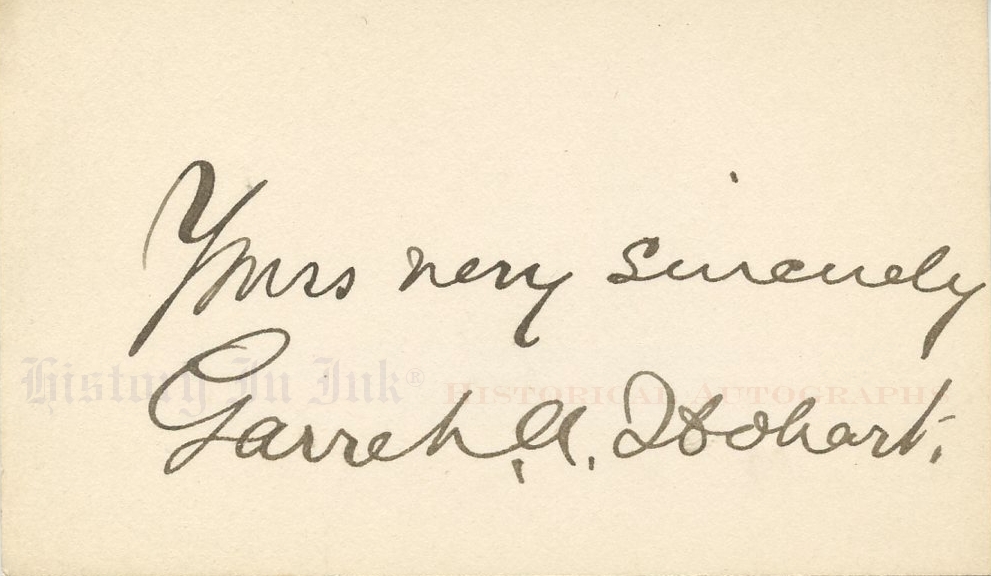 Yours very sincerely
History In Ink® Historical Autographs
Garret A. Hobart.